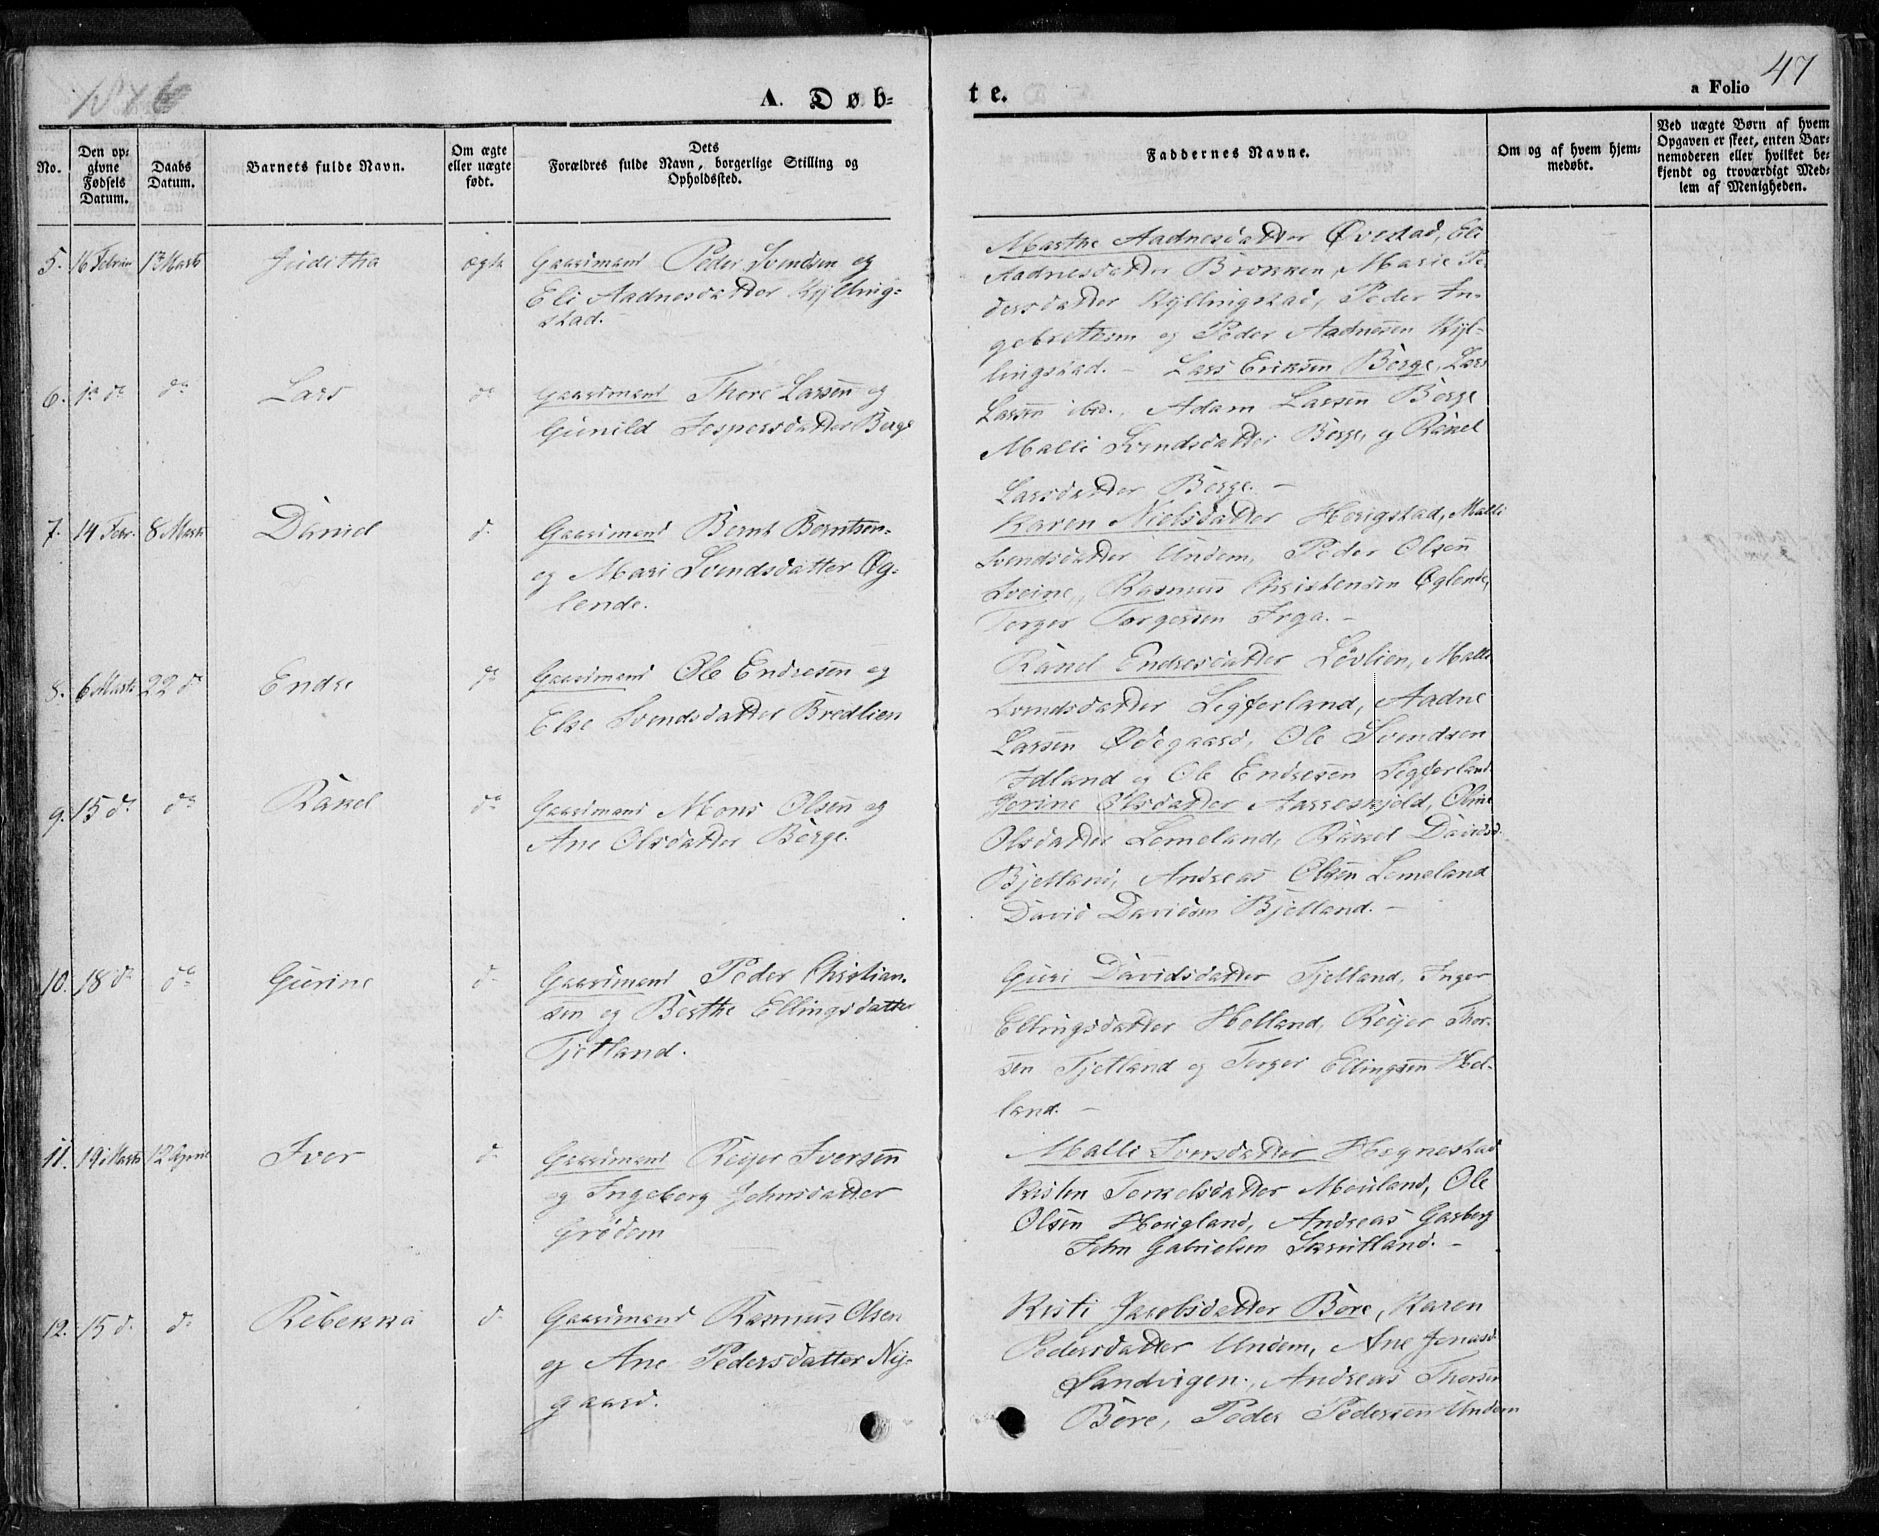 1846
A. Døb-
te.
a Folio 47
No.
Den op-
givne
Fødsels
Datum.
Daabs
Datum.
Barnets fulde Navn.
Om ægte
eller uægte
født.
Dets
Forældres fulde Navn, borgerlige Stilling og
Opholdssted.
Faddernes Navne.
Om og af hvem hjem-
medøbt.
Ved uægte Børn af hvem
Opgaven er skeet, enten Bar-
nemoderen eller hvilket be-
kjendt og troværdigt Med-
lem af Menigheden.
5. 16 Februar 13 Marts Juditha ægte
Gaardmand Peder Svendsen og
Eli Aadnesdatter Kylling-
stad.
Marthe Aadnesdatter Øvestad, Eli
Aadnesdatter Brekken, Marie Pe-
dersdatter Kyllingstad, Peder In-
gebretsen og Peder Aadnesen Kyl-
lingstad. –
6. do do Lars do
Gaardmand Thore Larsen og
Gunild Jespersdatter Berge
Lars Eriksen Berge, Lars
Larsen ibid., Adam Larsen Berge
Malli Svendsdatter Berge, og Rakel
Larsdatter Berge. –
7. 14 Febr. 8 Marts Daniel do
Gaardmand Bernt Berntsen
og Mari Svendsdatter Øg-
lende.
Karen Nielsdatter Hougstad, Malli
Svendsdatter Undem, Peder Olsen
Sveine, Rasmus Christensen Øglende,
Torger Torgersen Frga. –
8. 6 Marts 22 do Endre do
Gaardmand Ole Endresen og
Else Svendsdatter Bredlien
Rakel Endresdatter Løvlien, Malli
Svendsdatter Ligferland, Aadne
Larsen Ødegaard, Ole Svendsen
Idland og Ole Endresen Ligferland
9. 15 do do Rakel do
Gaardmand Mons Olsen og
Ane Olsdatter Berge.
Jorine Olsdatter Aarreskjold, Oline
Olsdatter Lomeland, Rakel Davidsd.
Bjelland, Andreas Olsen Lomeland
David Davidsen Bjelland. –
10. 18 do do Gurine do
Gaardmand Peder Christian-
sen og Berthe Ellingsdatter
Tjetland.
Guri Davidsdatter Tjelland, Inger
Ellingsdatter Helland, Reijer Thor-
sen Tjetland og Torger Ellingsen Hel-
land. –
11. 19 Marts 12 April Iver do
Gaardmand Reijer Iversen
og Ingeborg Johnsdatter
Grødem
Malli Iversdatter Hegnestad
Kisten Terkelsdatter Mouland, Ole
Olsen Hougland, Andreas Garberg
John Gabrielsen Skrutland. –
12. 15 do do Rebekka do
Gaardmand Rasmus Olsen
og Ane Pedersdatter Ny-
gaard.
Kisti Jacobsdatter Bore, Karen
Pedersdatter Undem, Ane Jonasd.
Sandvigen, Andreas Thorsen
Bore, Peder Pedersen Undem